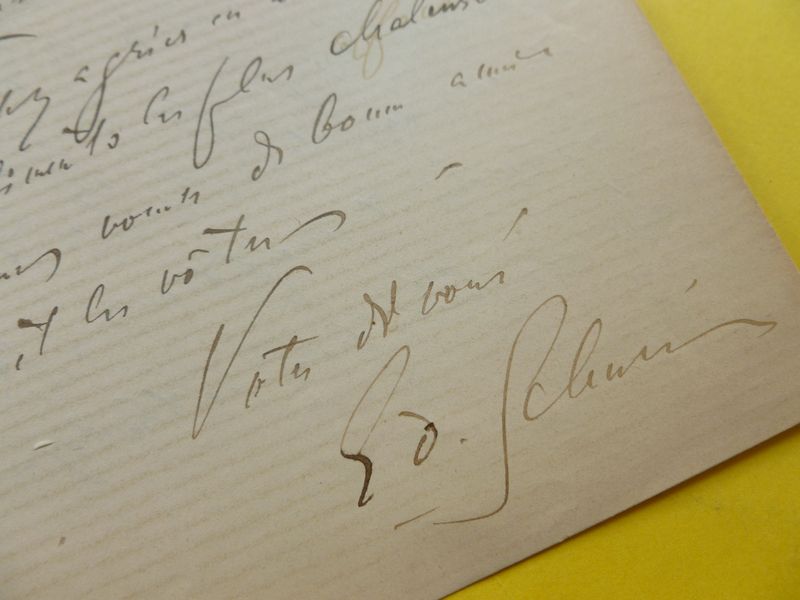 agréer en
les plus chaleur
voeux de bonne année
et les vôtres
Votre dévoué
Ed. Schuré